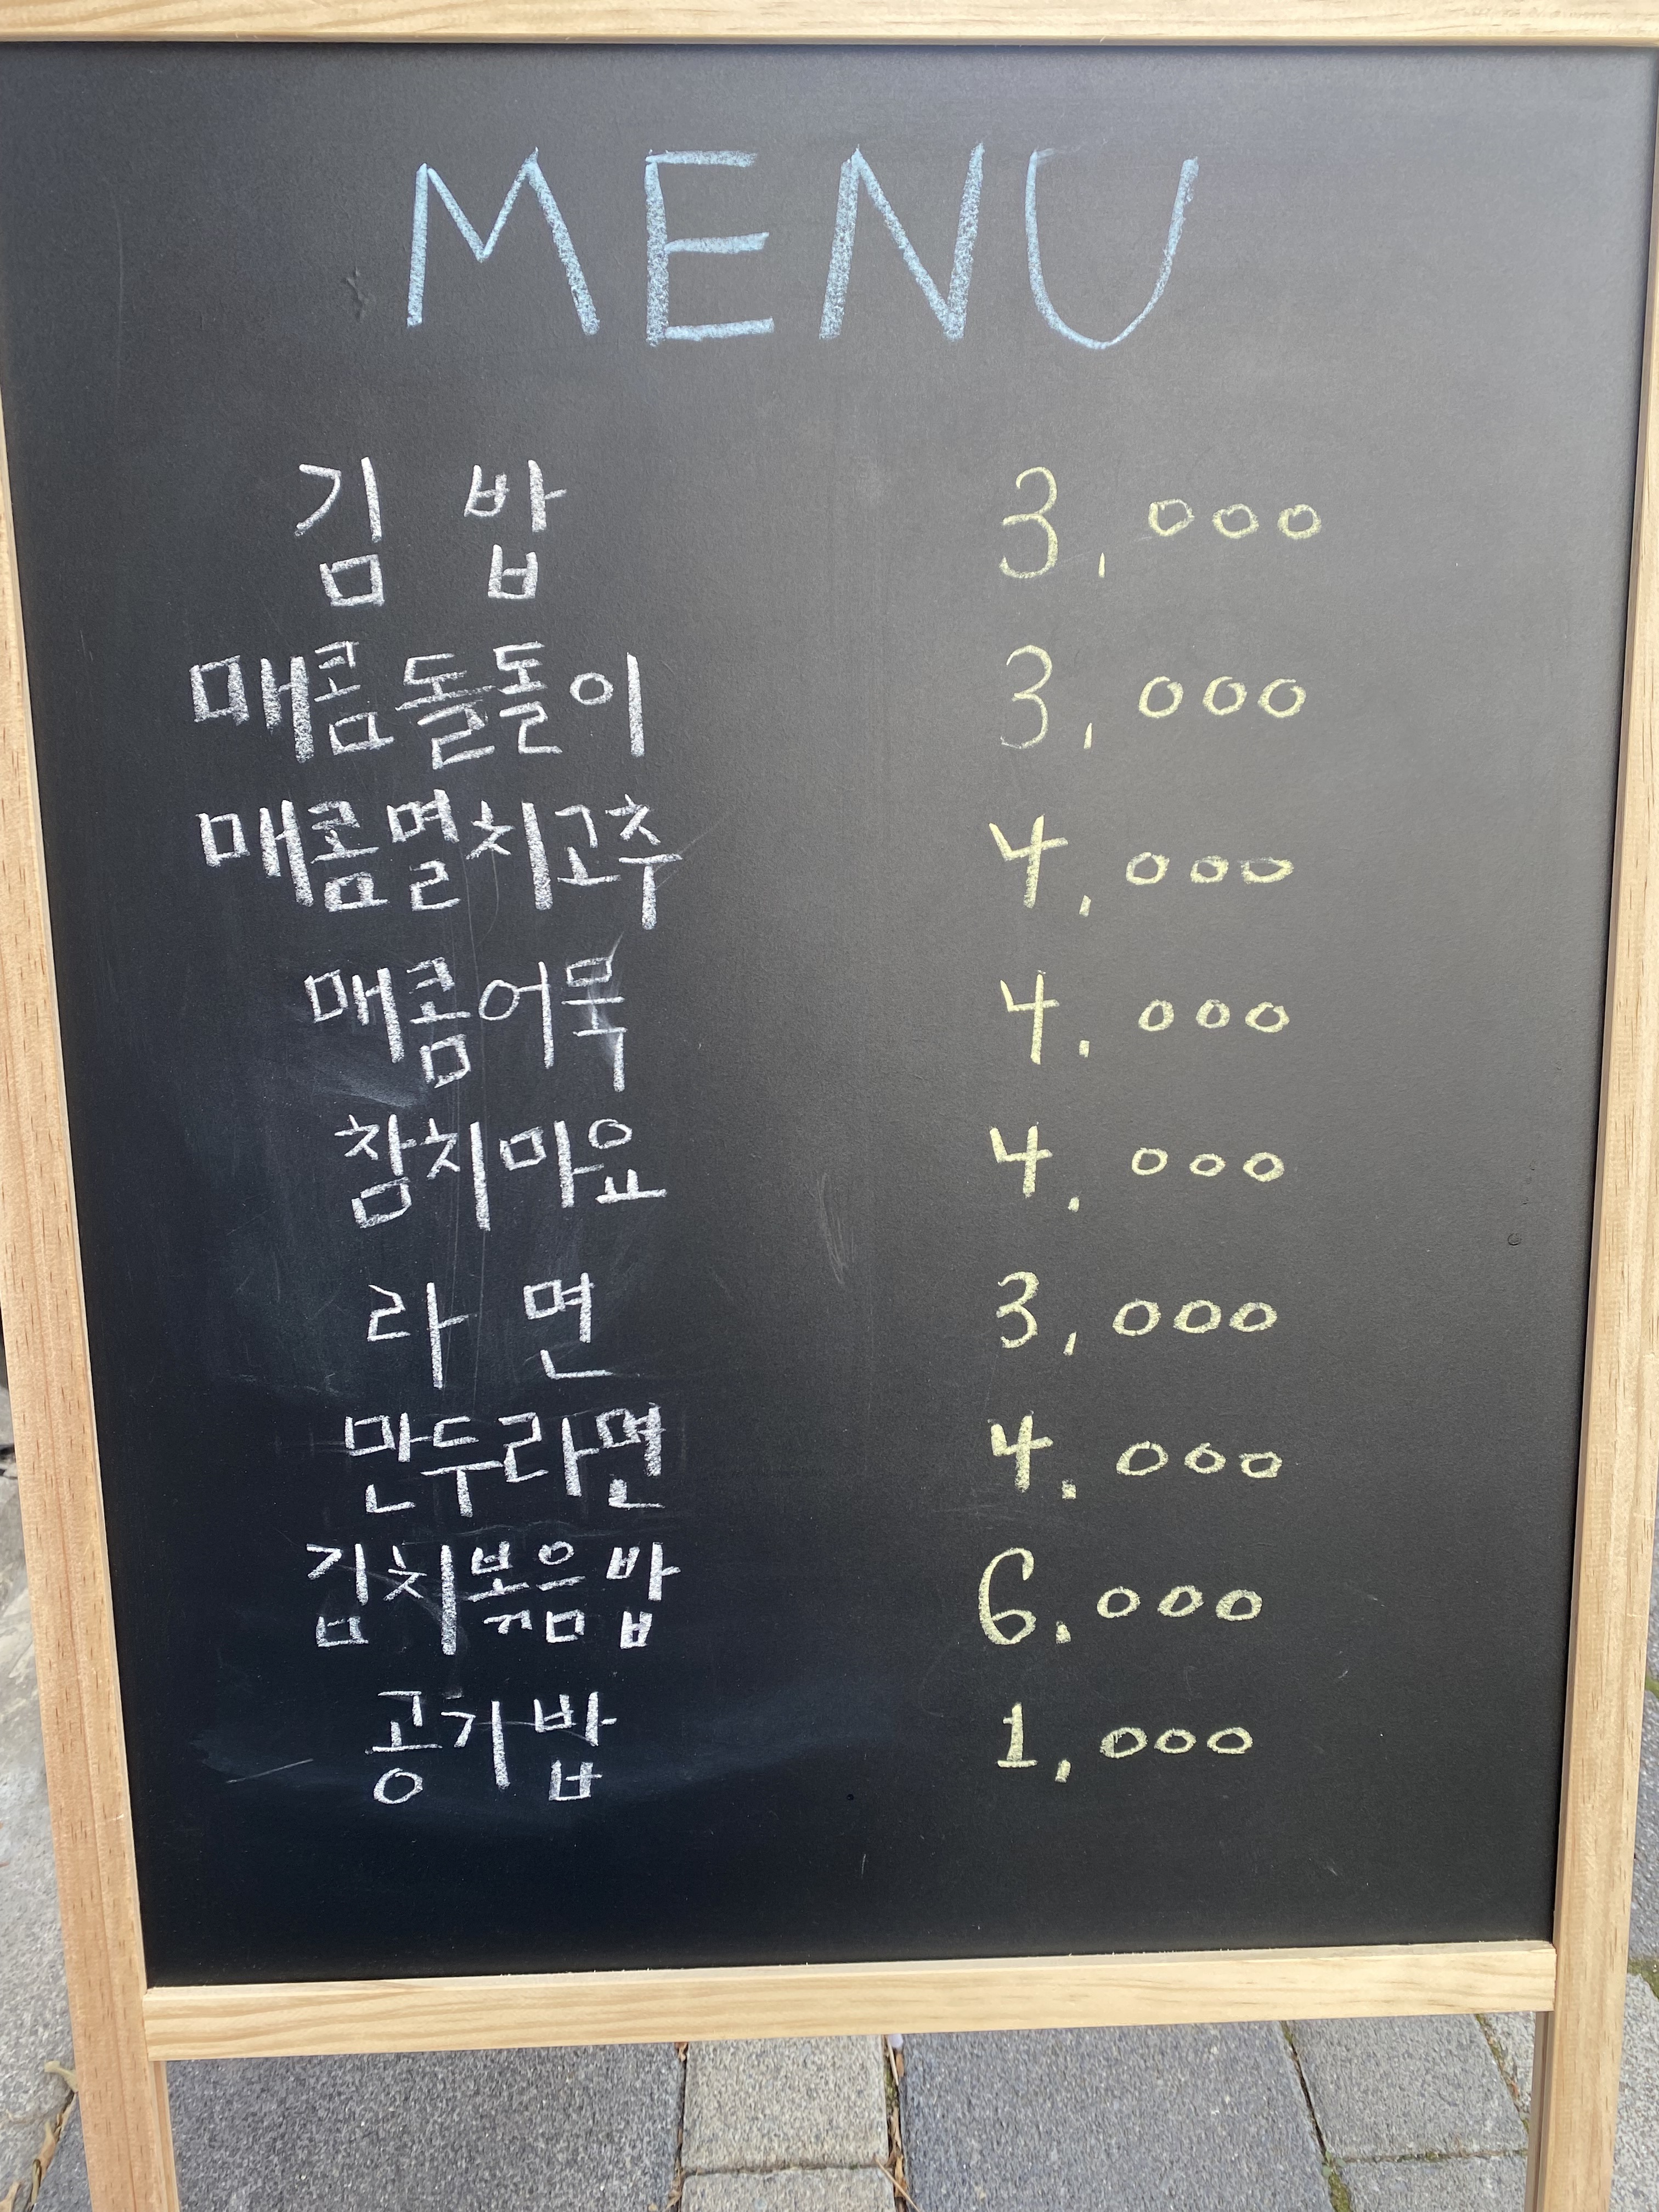 MENU
김 밥 3,000
매콤돌돌이 3,000
매콤멸치고추 4,000
매콤어묵 4.000
참치마요 4,000
라 면 3,000
만두라면 4.000
김치볶음밥 6.000
공기밥 1,000